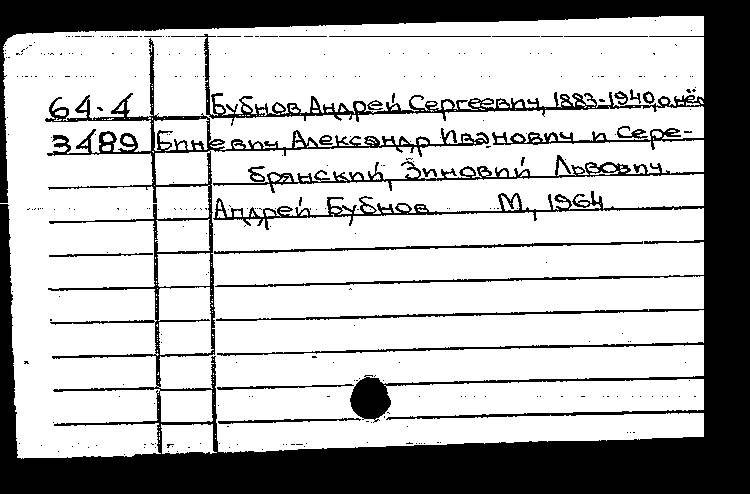 64-4 Бубнов, Андрей Сергеевич, 1883-1940, о нём
3489 Биневич, Александр Иванович и Сере-
брянский, Зиновий Львович.
Андрей Бубнов М., 1964.